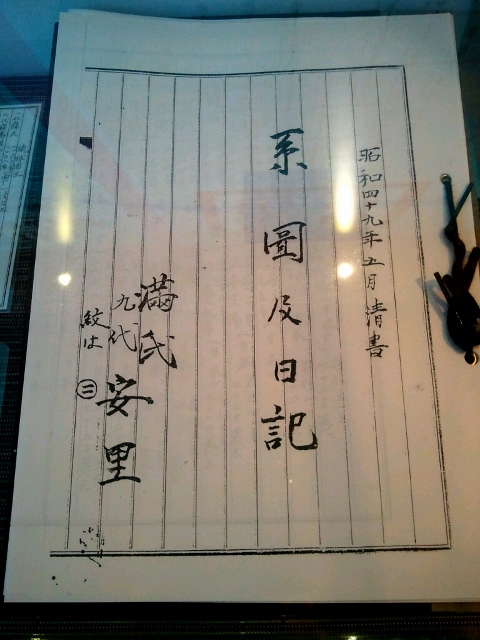 昭和四十九年五月清書
系圖及日記
満氏
九代 安里
紋は ㊂